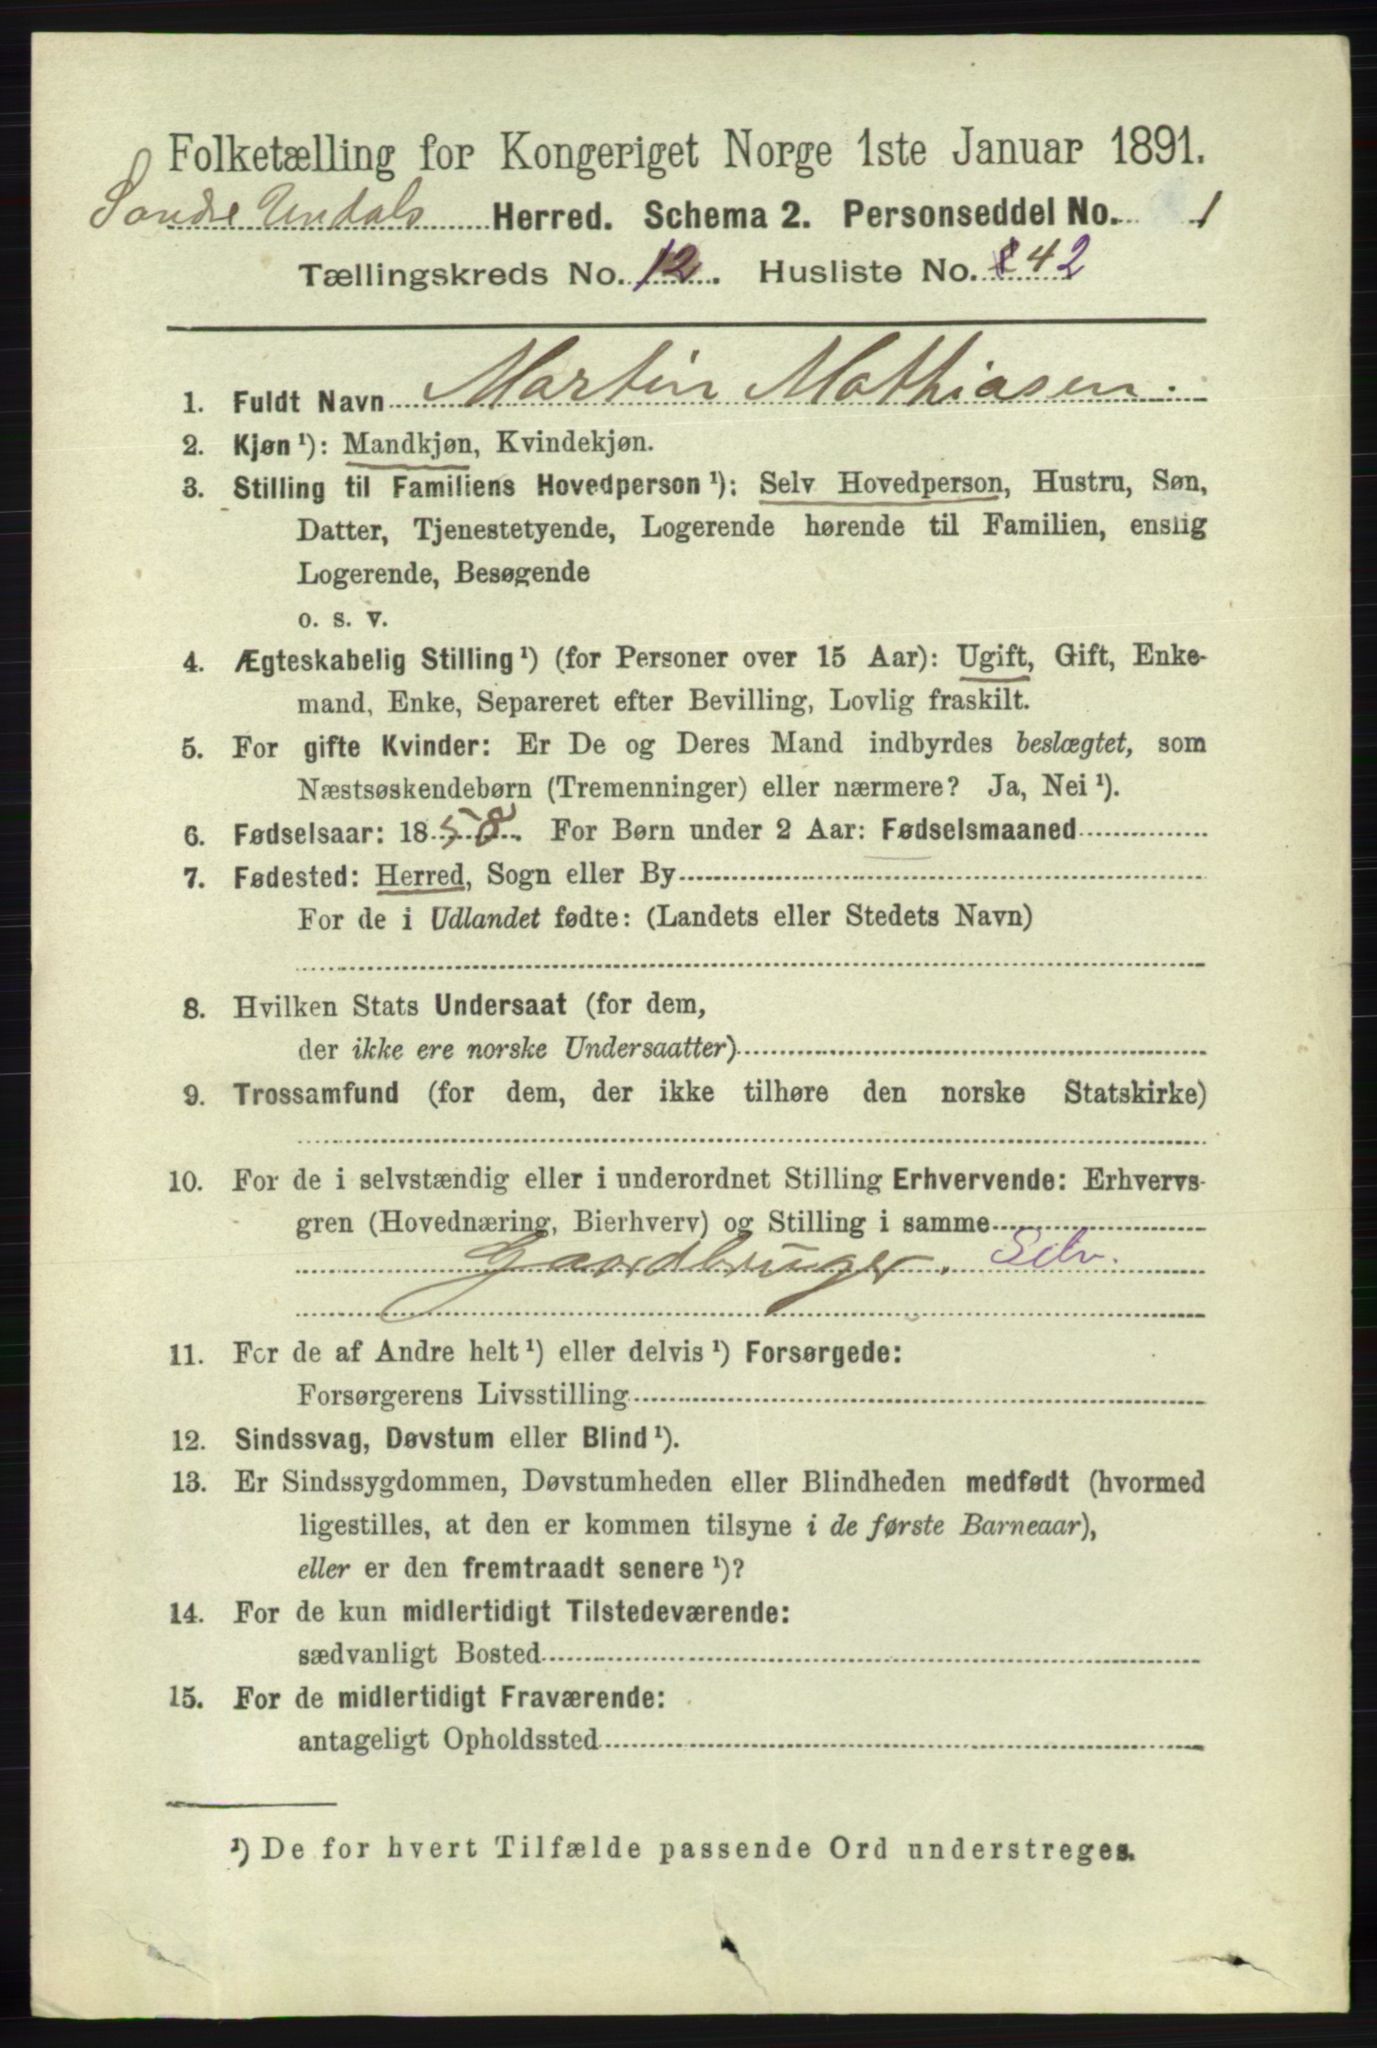 Folketælling for Kongeriget Norge 1ste Januar 1891.
Søndre Undals Herred. Schema 2. Personseddel No. 1
Tællingskreds No. 12. Husliste No. 42
1. Fuldt Navn Martin Mathiasen.
2. Kjøn ¹): Mandkjøn, Kvindekjøn.
3. Stilling til Familiens Hovedperson ¹): Selv Hovedperson, Hustru, Søn,
Datter, Tjenestetyende, Logerende hørende til Familien, enslig
Logerende, Besøgende
o. s. v.
4. Ægteskabelig Stilling ¹) (for Personer over 15 Aar): Ugift, Gift, Enke-
mand, Enke, Separeret efter Bevilling, Lovlig fraskilt.
5. For gifte Kvinder: Er De og Deres Mand indbyrdes beslægtet, som
Næstsøskendebørn (Tremenninger) eller nærmere? Ja, Nei ¹).
6. Fødselsaar: 1858. For Børn under 2 Aar: Fødselsmaaned
7. Fødested: Herred, Sogn eller By
For de i Udlandet fødte: (Landets eller Stedets Navn)
8. Hvilken Stats Undersaat (for dem,
der ikke ere norske Undersaatter)
9. Trossamfund (for dem, der ikke tilhøre den norske Statskirke)
10. For de i selvstændig eller i underordnet Stilling Erhvervende: Erhvervs-
gren (Hovednæring, Bierhverv) og Stilling i samme
Gaardbruger. Selv.
11. For de af Andre helt ¹) eller delvis ¹) Forsørgede:
Forsørgerens Livsstilling
12. Sindssvag, Døvstum eller Blind ¹).
13. Er Sindssygdommen, Døvstumheden eller Blindheden medfødt (hvormed
ligestilles, at den er kommen tilsyne i de første Barneaar),
eller er den fremtraadt senere ¹)?
14. For de kun midlertidigt Tilstedeværende:
sædvanligt Bosted
15. For de midlertidigt Fraværende:
antageligt Opholdssted
¹) De for hvert Tilfælde passende Ord understreges.